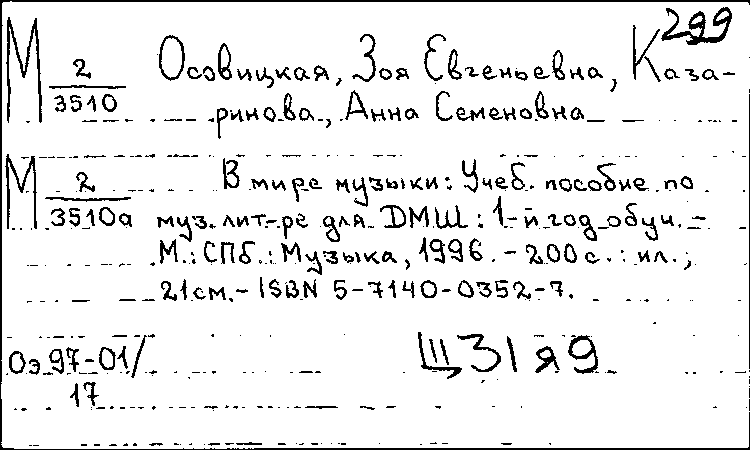 299
М 2/3510 Осовицкая, Зоя Евгеньевна, Каза-
ринова, Анна Семеновна
М 2/3510а В мире музыки: Учеб. пособие по
муз. лит-ре для ДМШ: 1-й год обуч. -
М.: СПб.: Музыка, 1996. - 200 с.: ил.;
21 см. - ISBN 5-7140-0352-7.
Оэ 97-01/
17
Щ31я9